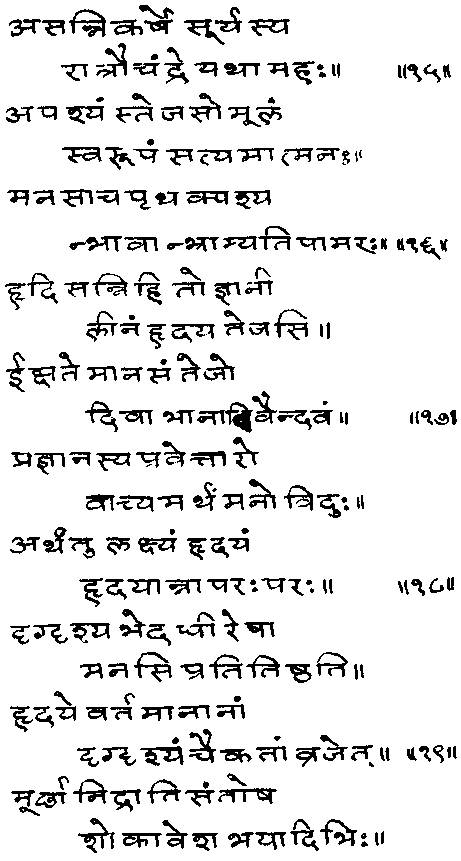 असन्निकर्षे सूर्यस्य
रात्रौचंद्रे यथा महः॥ ॥१५॥
अपश्यं स्तेजसो मूलं
स्वरूपं सत्यमात्मनः॥
मनसा च पृथक्पश्य
न्भावा न्भ्राम्यति पामरः॥ ॥१६॥
हृदि सन्निहितो ज्ञानी
लीनं हृदय तेजसि॥
ईक्षते मानसं तेजो
दिवा भानाविवैन्दवं॥ ॥१७॥
प्रज्ञानस्य प्रवेत्तारो
वाच्यमर्थं मनो विदुः॥
अर्थंतु लक्ष्यं हृदयं
हृदयान्नापरःपरः॥ ॥१८॥
दृग्दृश्य भेद धीरेषा
मनसि प्रतितिष्ठति॥
हृदये वर्तमानानां
दृग्दृश्यंचैकतां व्रजेत्॥ ॥१९॥
मूर्छा निद्राति संतोष
शोकावेश भयादिभिः॥